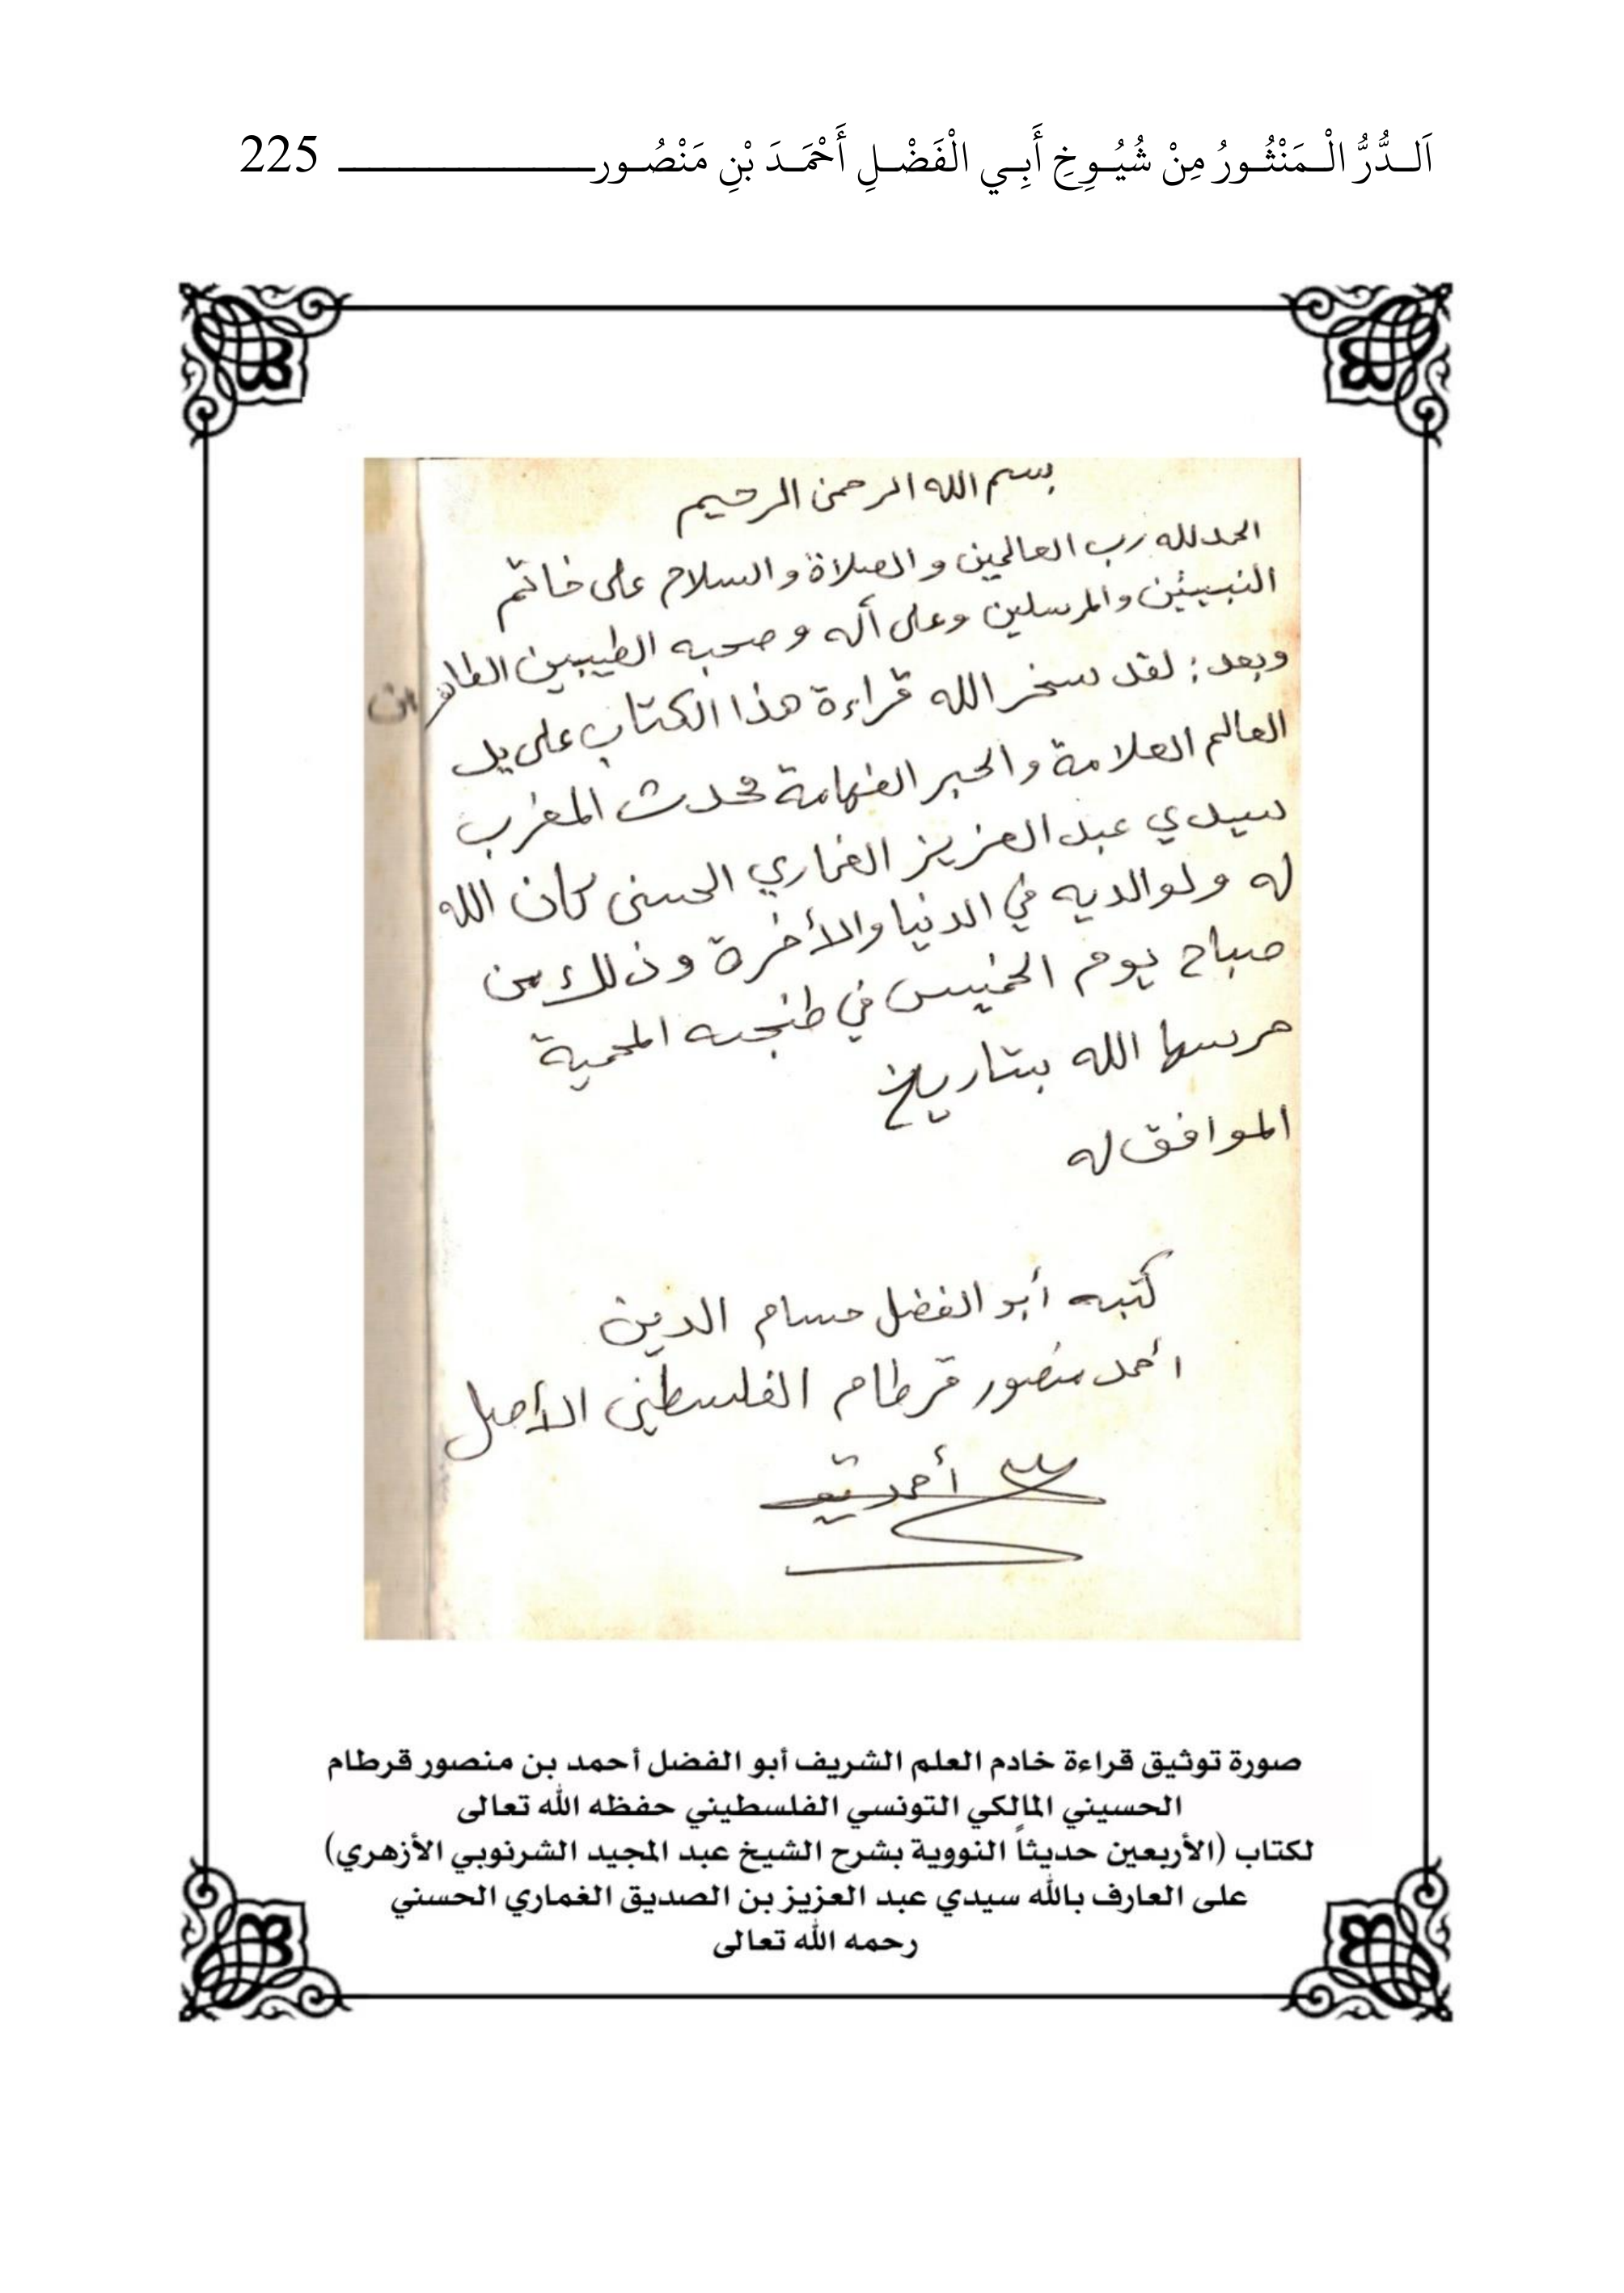 اَلـدُّرُّ الْـمَنْثُـورُ مِنْ شُيُـوخِ أَبِـي الْفَضْـلِ أَحْمَـدَ بْنِ مَنْصُـور 225
بسم الله الرحمن الرحيم
الحمد لله رب العالمين والصلاة والسلام على خاتم
النبيين والمرسلين وعلى أله وصحبه الطيبين
وبعد: لقد سخر الله قراءة هذا الكتاب على يد
العالم العلامة والحبر الفهامة محدث المغرب
سيدي عبد العزيز الغماري الحسني كان الله
له ولوالديه في الدنيا والأخرة وذلك من
صباح يوم الخميس في طنجه المحمية
حرسها الله بتاريخ
الموافق له
كتبه أبو الفضل حسام الدين
أحمد منصور قرطام الفلسطيني الأصل
أحمد
صورة توثيق قراءة خادم العلم الشريف أبو الفضل أحمد بن منصور قرطام
الحسيني المالكي التونسي الفلسطيني حفظه الله تعالى
لكتاب (الأربعين حديثاً النووية بشرح الشيخ عبد المجيد الشرنوبي الأزهري)
على العارف بالله سيدي عبد العزيز بن الصديق الغماري الحسني
رحمه الله تعالى